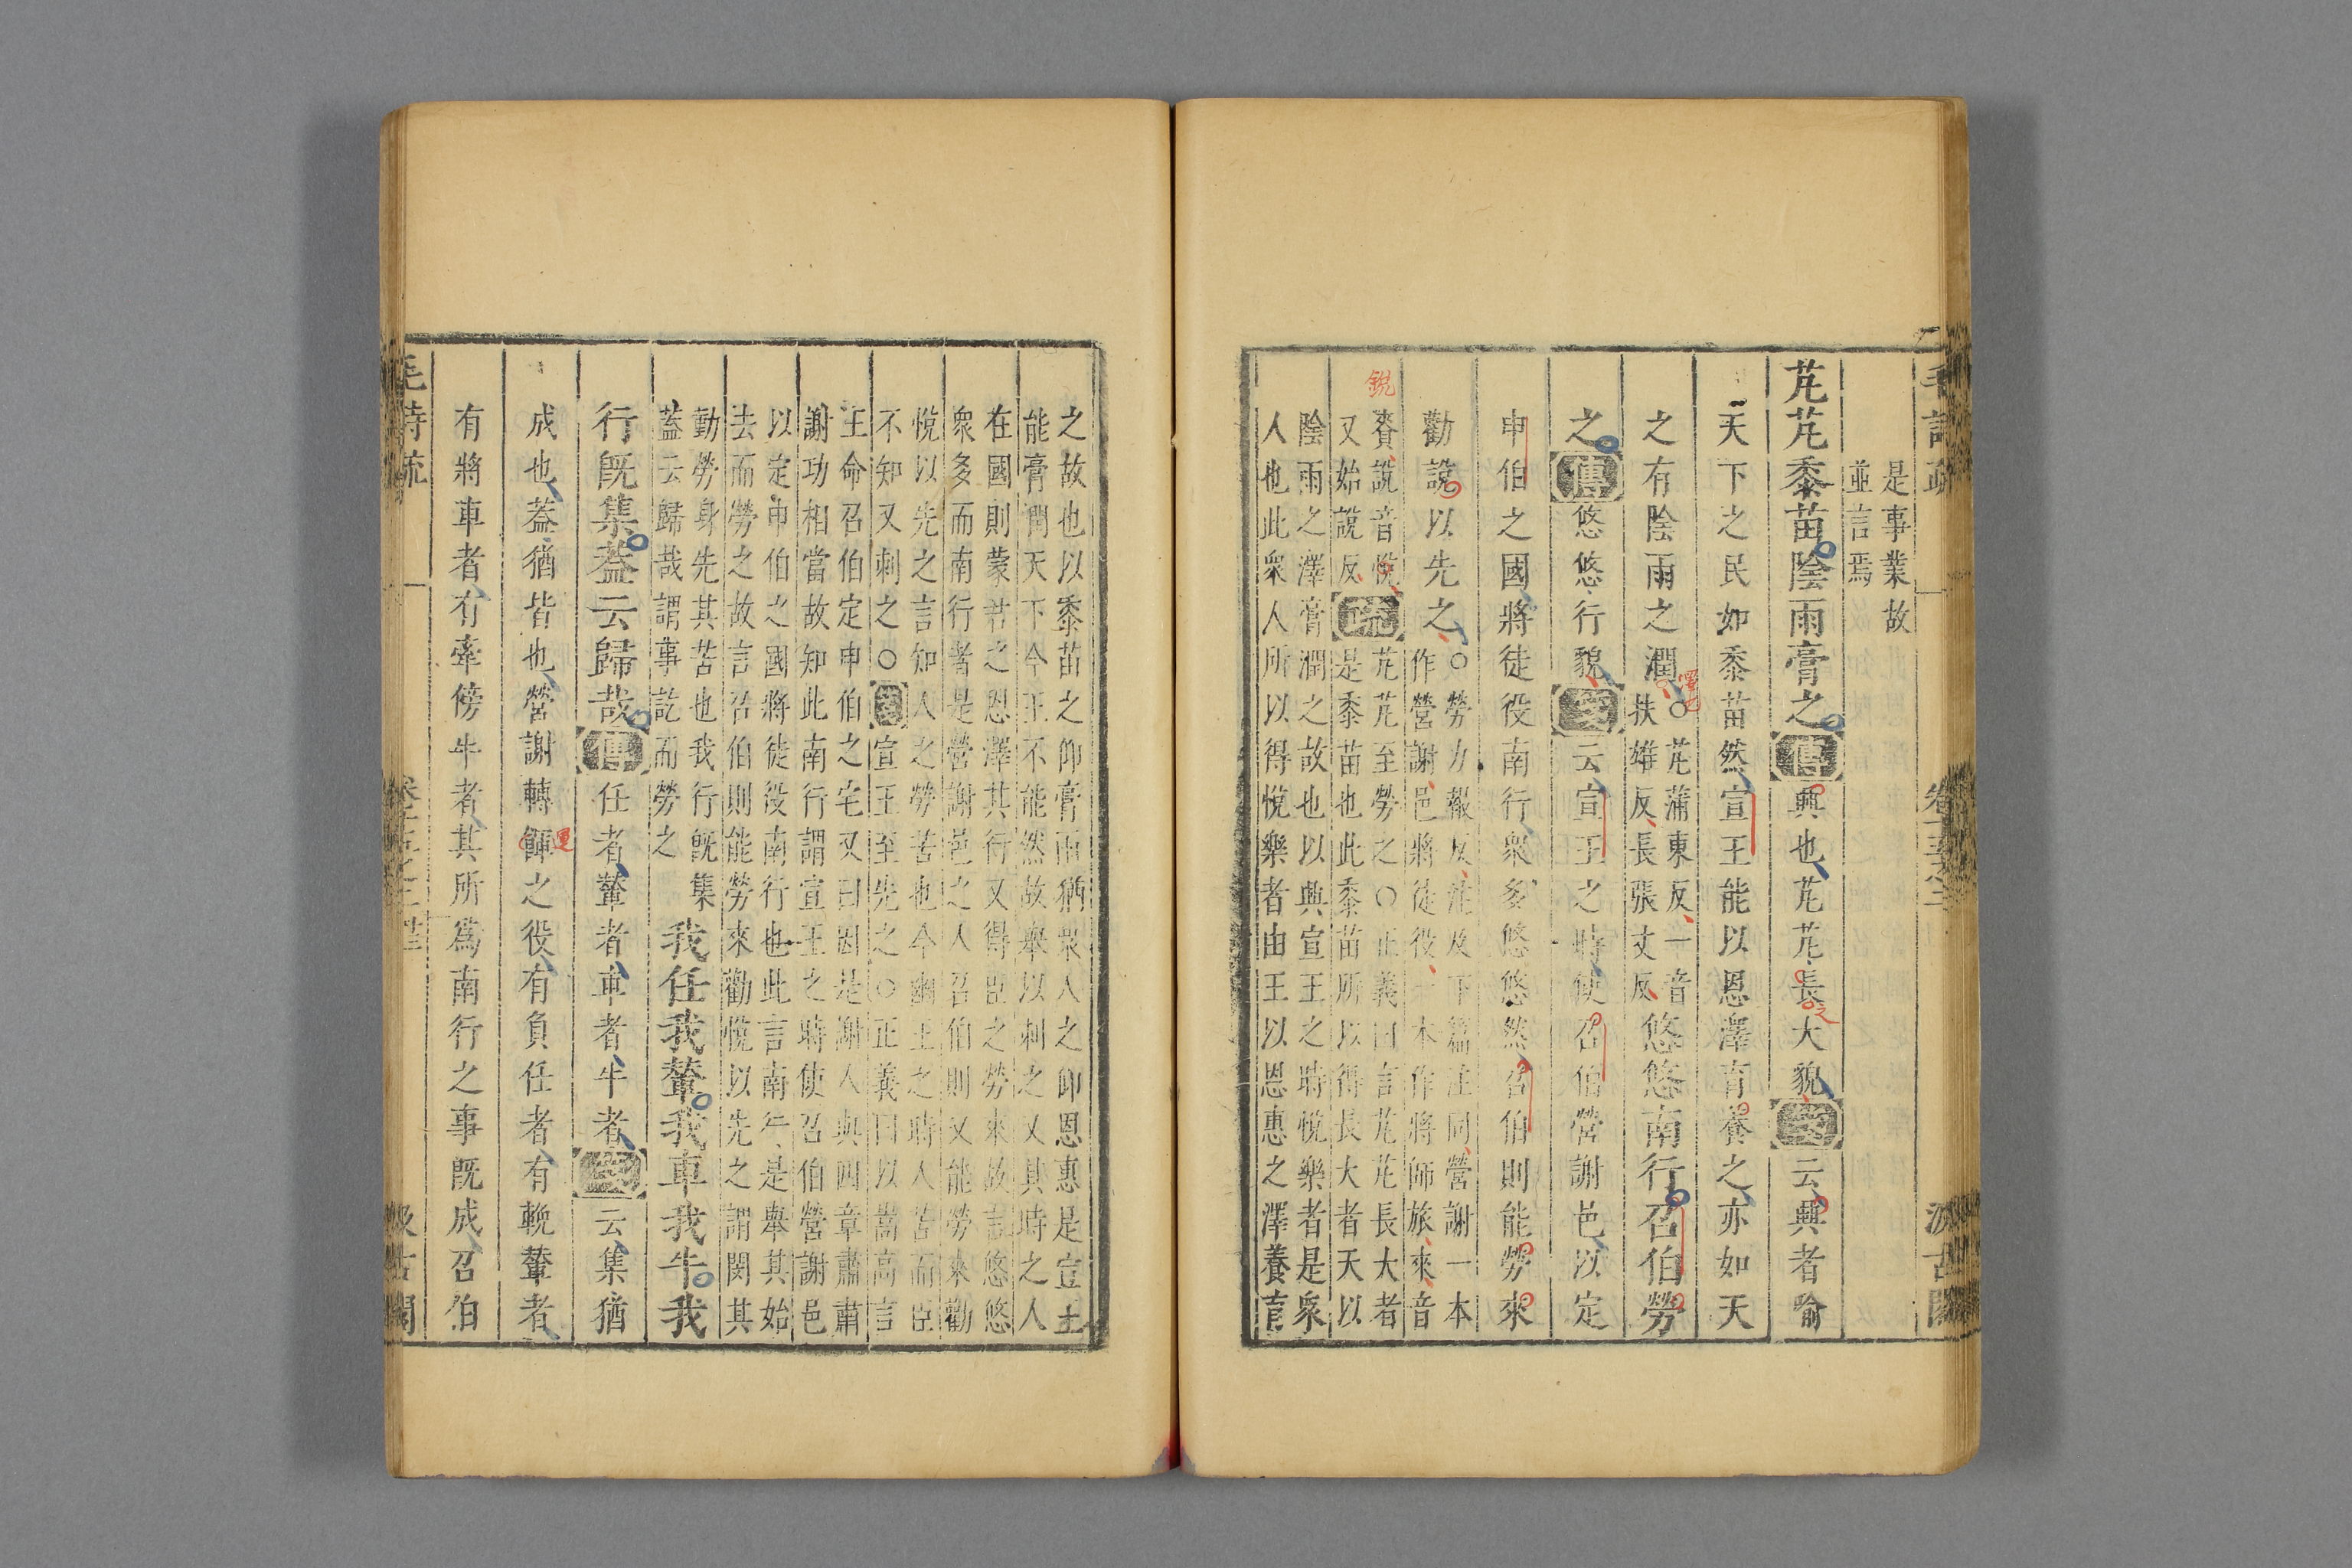 是事業故
並言焉
芃芃黍苗陰雨膏之傳興也芃芃長大貌箋云興者喻
天下之民如黍苗然宣王能以恩澤育養之亦如天
之有陰雨之潤○芃蒲東反一音
扶雄反長張丈反悠悠南行召伯勞
之傳悠悠行貌箋云宣王之時使召伯營謝邑以定
申伯之國將徒役南行眾多悠悠然召伯則能勞來
勸說以先之○勞力報反注及下篇注同營謝一本
作營謝邑將徒役一本作將師旅來音
賚說音悅
又始說反
銳
疏芃芃至勞之○正義曰言芃芃長大者
是黍苗也此黍苗所以得長大者天以
陰雨之澤膏潤之故也以興宣王之時悅樂者是眾
人也此眾人所以得悅樂者由王以恩惠之澤養育
之故也以黍苗之仰膏雨猶眾人之仰恩惠是宣王
能膏潤天下今王不能然故舉以刺之又其時之人
在國則蒙君之恩澤其行又得臣之勞來故言悠悠
眾多而南行者是營謝邑之人召伯則又能勞來勸
悅以先之言知人之勞苦也今幽王之時人苦而臣
不知又刺之○箋宣王至先之○正義曰以嵩高言
王命召伯定申伯之宅又曰因是謝人與四章肅肅
謝功相當故知此南行謂宣王之時使召伯營謝邑
以定申伯之國將徒役南行也此言南行是舉其始
去而勞之故言召伯則能勞來勸悅以先之謂閔其
勤勞身先其苦也我行既集
蓋云歸哉謂事訖而勞之我任我輦我車我牛我
行既集蓋云歸哉傳任者輦者車者牛者箋云集猶
成也蓋猶皆也營謝轉餫之役有負任者有輓輦者
運
有將車者有牽傍牛者其所為南行之事既成召伯
毛詩疏
汲古閣